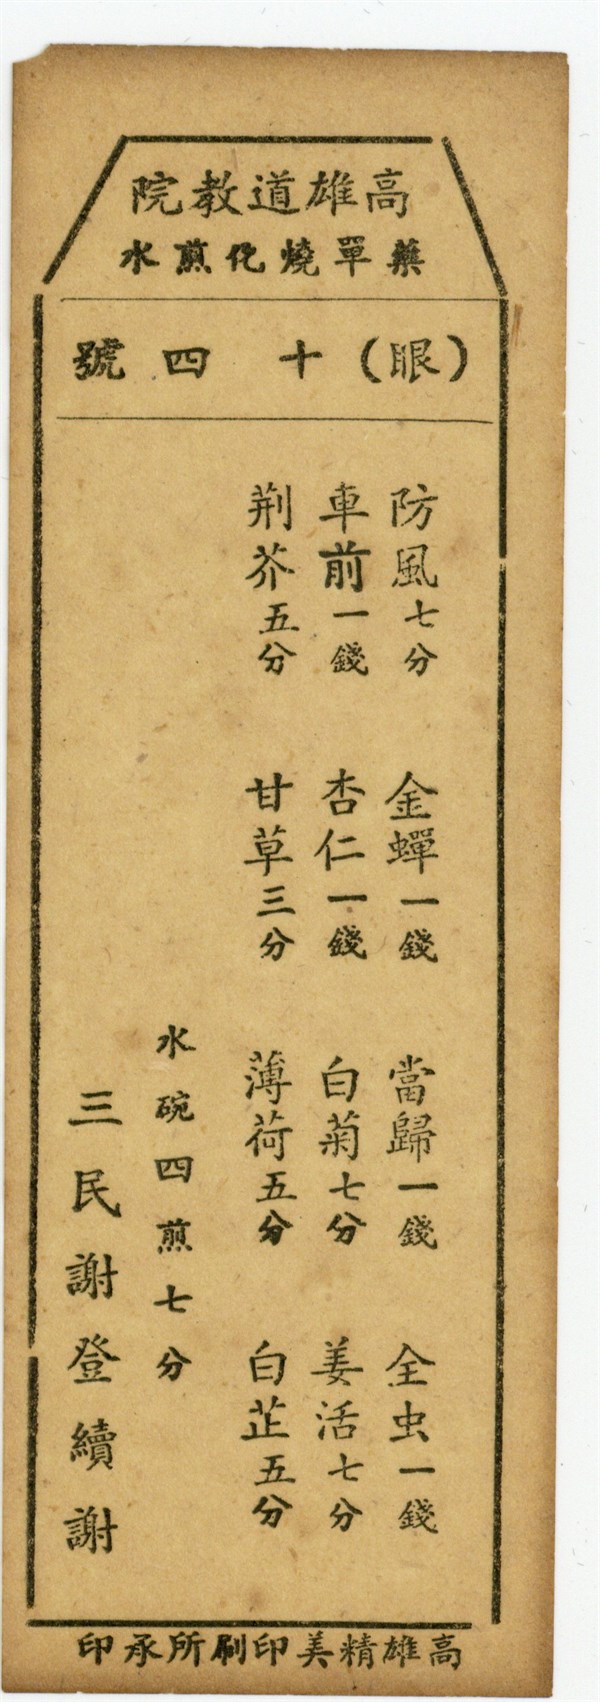 高雄道教院
藥單燒化煎水
(眼)十四號
防風七分 金蟬一錢 當歸一錢 全虫一錢
車前一錢 杏仁一錢 白菊七分 姜活七分
荆芥五分 甘草三分 薄荷五分 白芷五分
水碗四煎七分
三民謝登續謝
高雄精美印刷所承印